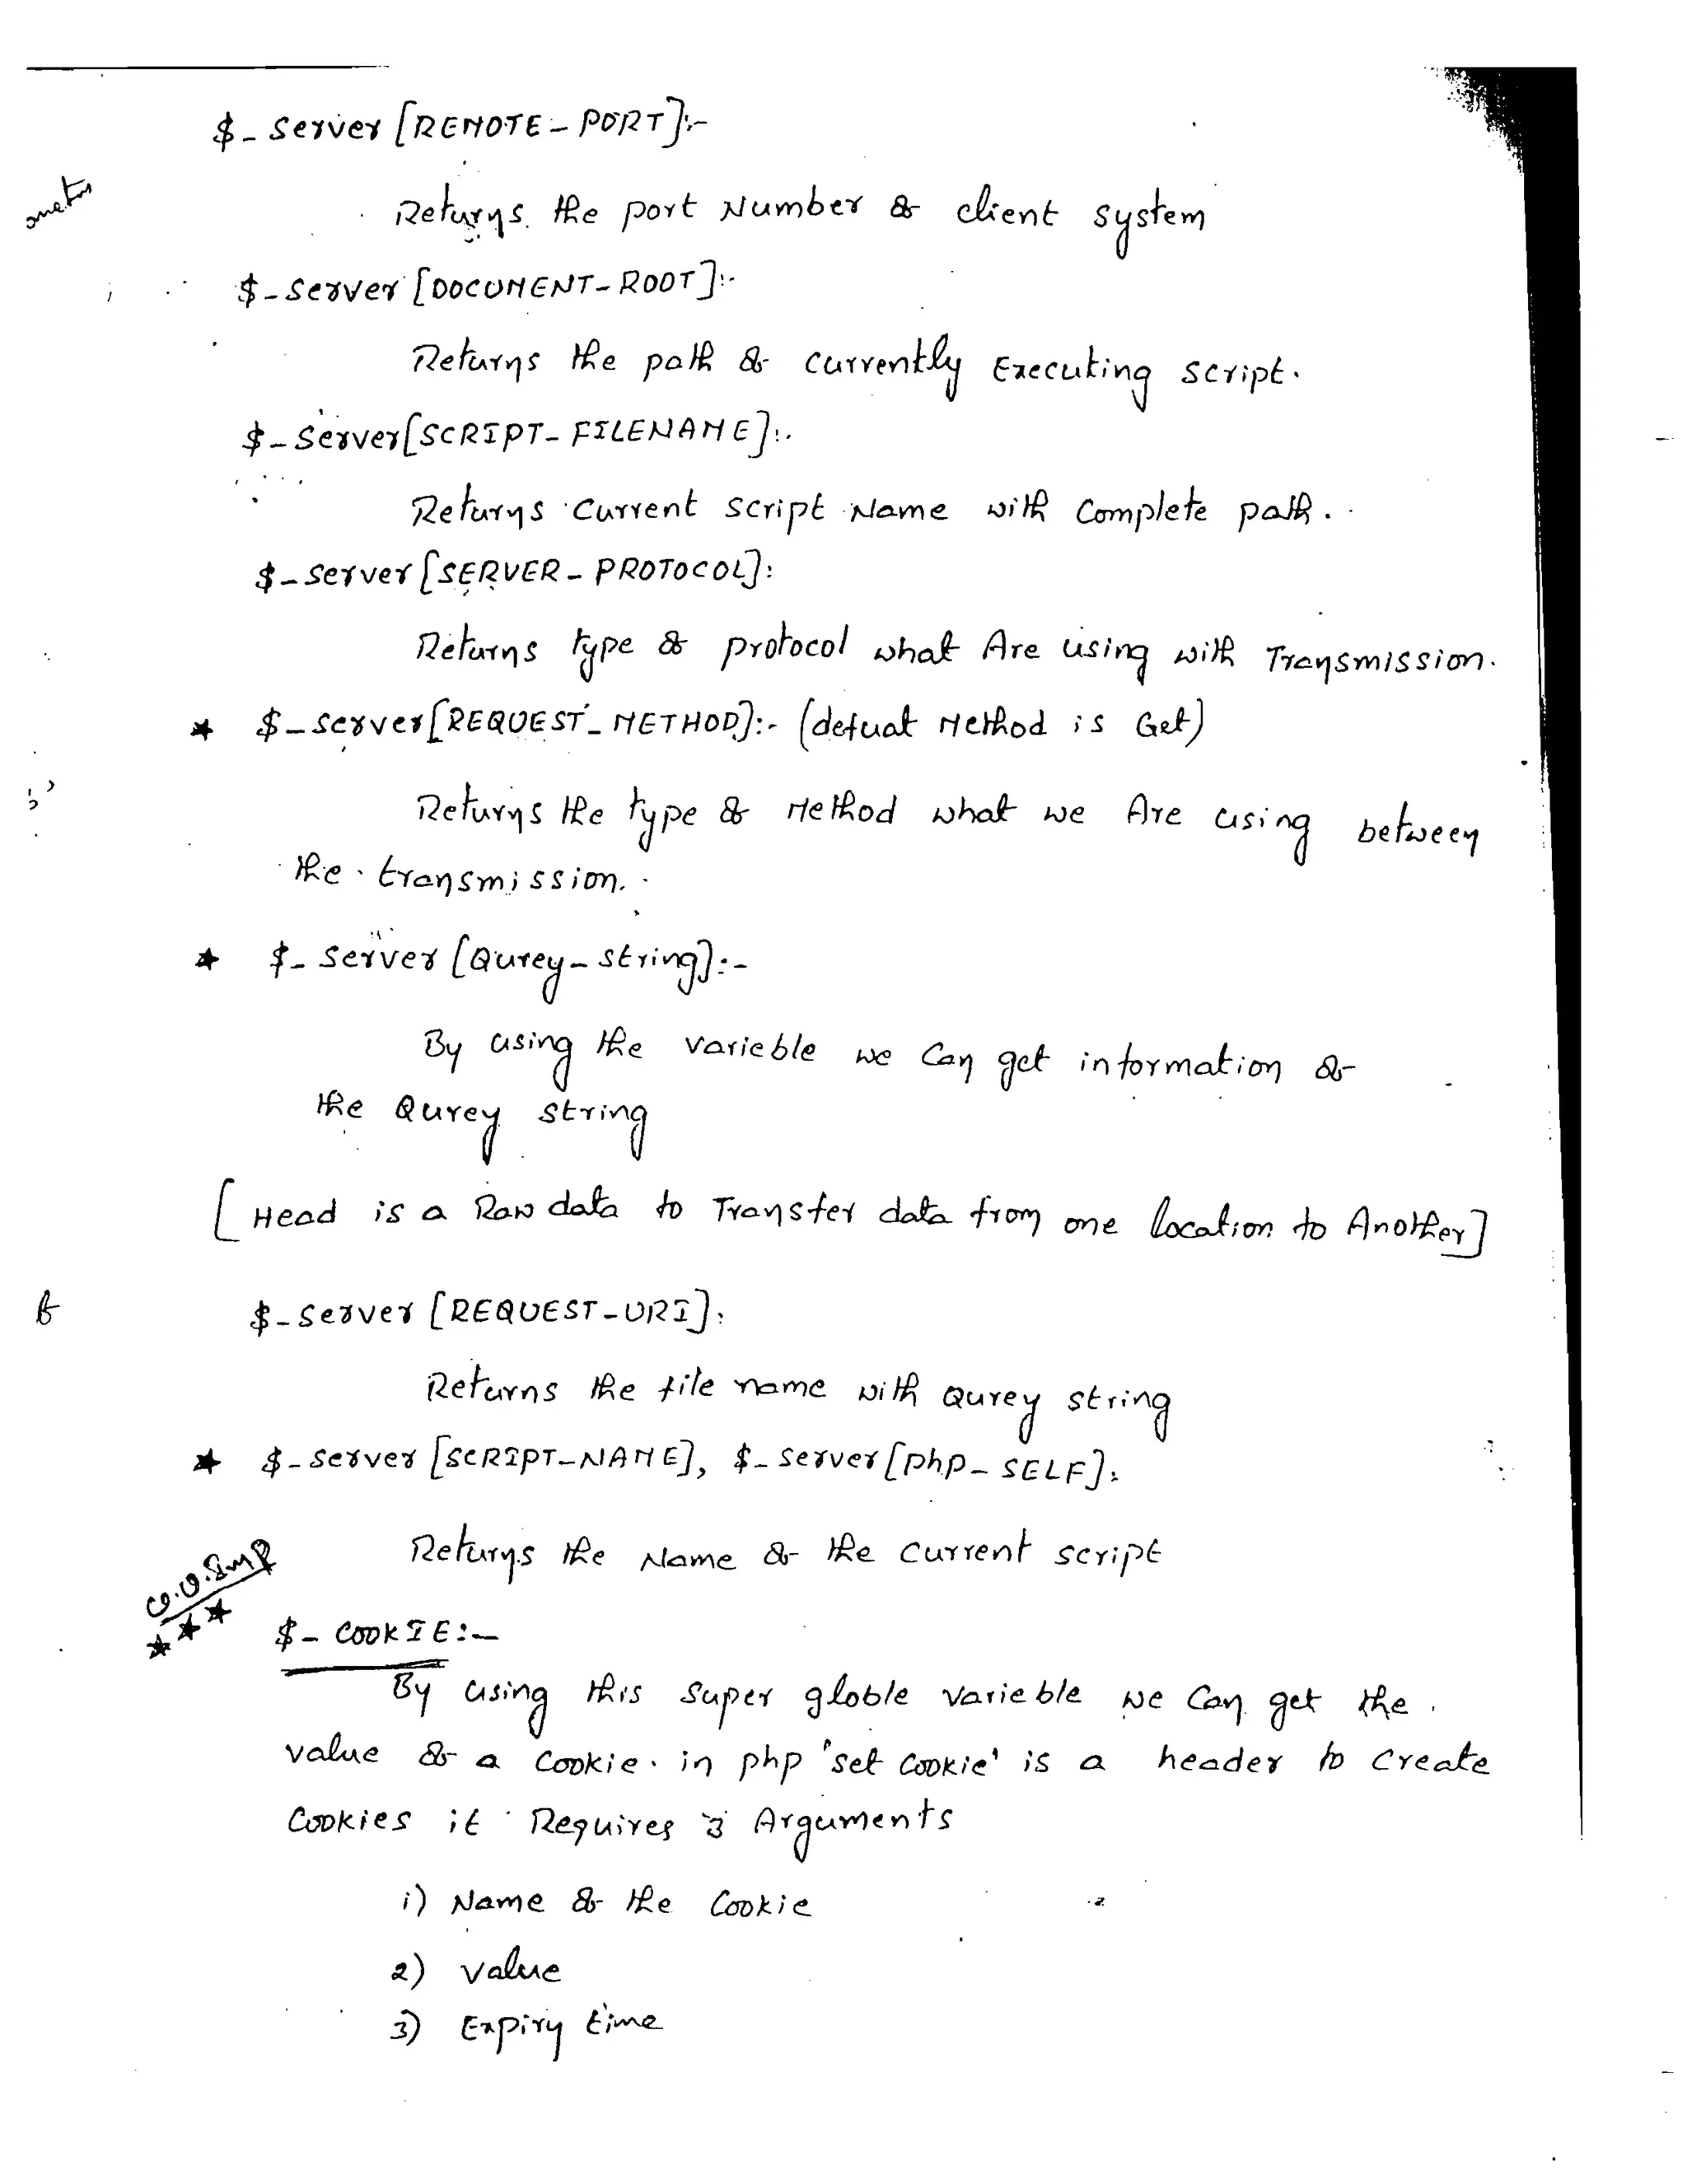 $_Server[REMOTE_PORT]:-
Returns the port Number of client system
$_Server[DOCUMENT_ROOT]:-
Returns the path of currently Executing script.
$_Server[SCRIPT_FILENAME]:.
Returns current script Name with Complete path.
$_Server[SERVER_PROTOCOL]:
Returns type of protocol what Are using with Transmission.
★ $_Server[REQUEST_METHOD]:- (defual Method is Get)
Returns the type of Method what we Are using between
the transmission.
★ $_Server[Qurey_string]:-
By using the varieble we can get information of
the Qurey string
[Head is a Raw data to Transfer data from one location to Another]
$_Server[REQUEST_URI]:
Returns the file name with Qurey string
★ $_Server[SCRIPT_NAME], $_Server[php_SELF]:
Returns the Name of the current script
v.v.Imp
★★★ $_COOKIE:-
By using this super globle varieble we can get the
value of a cookie. in php 'set cookie' is a header to create
Cookies it Requires 3 Arguments
1) Name of the Cookie
2) value
3) Expiry time